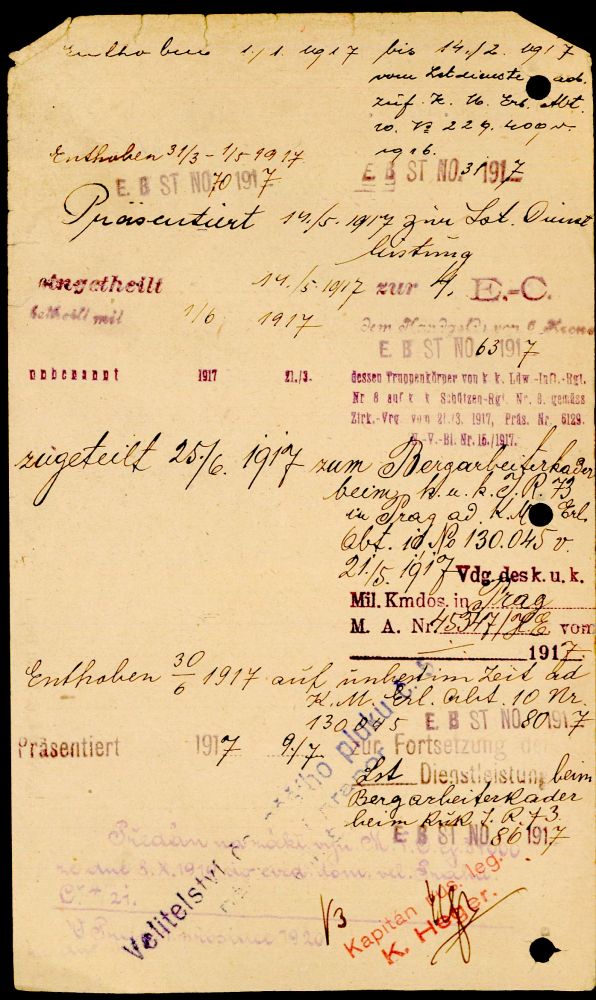 Enthoben 1./1. 1917 bis 14./2. 1917
vom Lstdienste ad.
zuf. K. M. Erl. Abt.
10. No 229.400 v.
1916.
Enthoben 31/3 - 1/5 1917
E. B ST NO. 31 1917
E. B ST NO 70 1917
Präsentiert 14./5. 1917 zur Lst. Dienst
leistung
eingetheilt 14./5. 1917 zur 4. E.-C.
betheilt mit 1/6 1917
dem Handgelde von 6 Kronen
E. B ST NO 63 1917
unbenannt 1917 21./3.
dessen Truppenkörper von k. k. Ldw.-Inft.-Rgt.
Nr 8 auf k. k. Schützen-Rgt. Nr. 8. gemäss
Zirk.-Vrg. von 21./3. 1917, Präs. Nr. 6129.
V.-Bl. Nr. 15./1917.
zugeteilt 25./6. 1917 zum Bergarbeiterkader
beim k. u. k. I. R. 73
in Prag ad. K. M. Erl.
Abt. 10 No 130.045 v.
21./5. 1917 Vdg. des k. u. k.
Mil. Kmdos. in Prag
M. A. Nr. 45347/ vom
1917.
Enthoben 30/6 1917 auf unbestim Zeit ad
K. M. Erl. Abt. 10 Nr.
130045 E. B ST NO 80 1917
Präsentiert 1917 9./7. zur Fortsetzung der
Lst Dienstleistung beim
Bergarbeiterkader
beim kuk I. R. 73.
E. B ST NO. 86 1917
Předán na zákl. výn. M.
ze dne
Velitelství pluku č. 5
Kapitán rus. leg.
K. Heger.